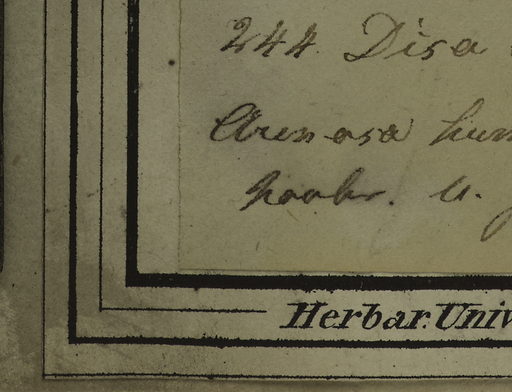 244. Disa
Arenosa hum
Novbr. u.
Herbar. Univ